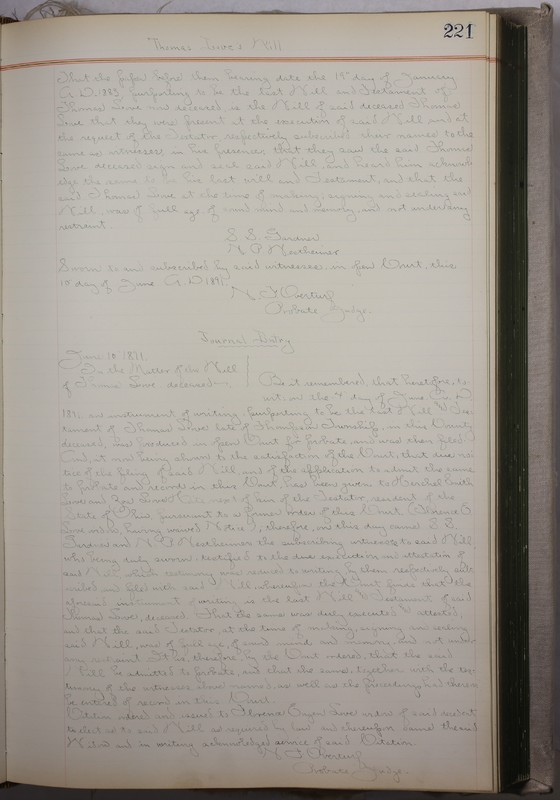 221
Thomas Love's Will
That the paper before them bearing date the day of January
A.D. 1883, purporting to be the last Will and Testament of
Thomas Love now deceased, is the Will of said deceased Thomas
Love that they were present at the execution of said Will and at
the request of the Testator, respectively subscribed their names to the
same as witnesses in his presence, that they saw the said Thomas
Love deceased sign and seal said Will, and heard him acknowl-
edge the same to be his last will and Testament, and that the
said Thomas Love at the time of making, signing and sealing said
Will, was of full age, of sound mind and memory, and not under any
restraint.
S. S. Gardner
N P Nestheimer
Sworn to and subscribed by said witnesses, in open Court, this
10 day of June A.D. 1891
N. F. Overturf
Probate Judge.
Journal Entry
June 10 1891
In the Matter of the Will
of Thomas Love deceased
Be it remembered, that heretofore, to
wit, on the day of June A. D.
189 an instrument of writing, purporting to be the last Will & Tes-
tament of Thomas Love late of Township, in this County
deceased, was produced in open Court for probate, and was then filed.
And, it now being shown to the satisfaction of the Court, that due no-
tice of the filing of said Will, and of the application to admit the same
to probate and record in this Court has been given to Herschel Smith
Love and next of kin of the Testator, resident of the
State of Ohio, pursuant to a former order of this Court (Florence O
Love widow, having waived Notice), therefore, on this day came S. S.
Gardner and N P Nestheimer the subscribing witnesses to said Will
who being duly sworn testified to the due execution and attestation of
said Will, which testimony was reduced to writing, by them respectively sub-
scribed and filed with said Will wherefore the Court finds that the
aforesaid instrument of writing is the last Will & Testament of said
Thomas Love, deceased. That the same was duly executed & attested,
and that the said Testator at the time of making, signing and sealing
said Will, was of full age, of sound mind and memory, and not under
any restraint. It is, therefore, by the Court ordered, that the said
Will be admitted to probate, and that the same, together with the tes-
timony of the witnesses above named, as well as the proceedings had therein
be entered of record in this Court.
Citation ordered and issued to Florence Love widow of said decedent
to elect as to said Will as required by law and thereupon came the said
Widow and in writing acknowledged service of said Citation.
N F Overturf
Probate Judge.